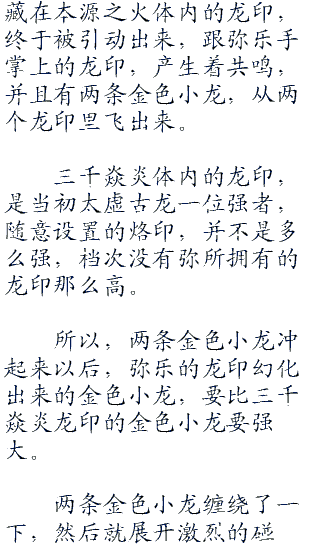 藏在本源之火体内的龙印，
终于被引动出来，跟弥乐手
掌上的龙印，产生着共鸣，
并且有两条金色小龙，从两
个龙印里飞出来。
三千焱炎体内的龙印，
是当初太虚古龙一位强者，
随意设置的烙印，并不是多
么强，档次没有弥所拥有的
龙印那么高。
所以，两条金色小龙冲
起来以后，弥乐的龙印幻化
出来的金色小龙，要比三千
焱炎龙印的金色小龙要强
大。
两条金色小龙缠绕了一
下，然后就展开激烈的碰